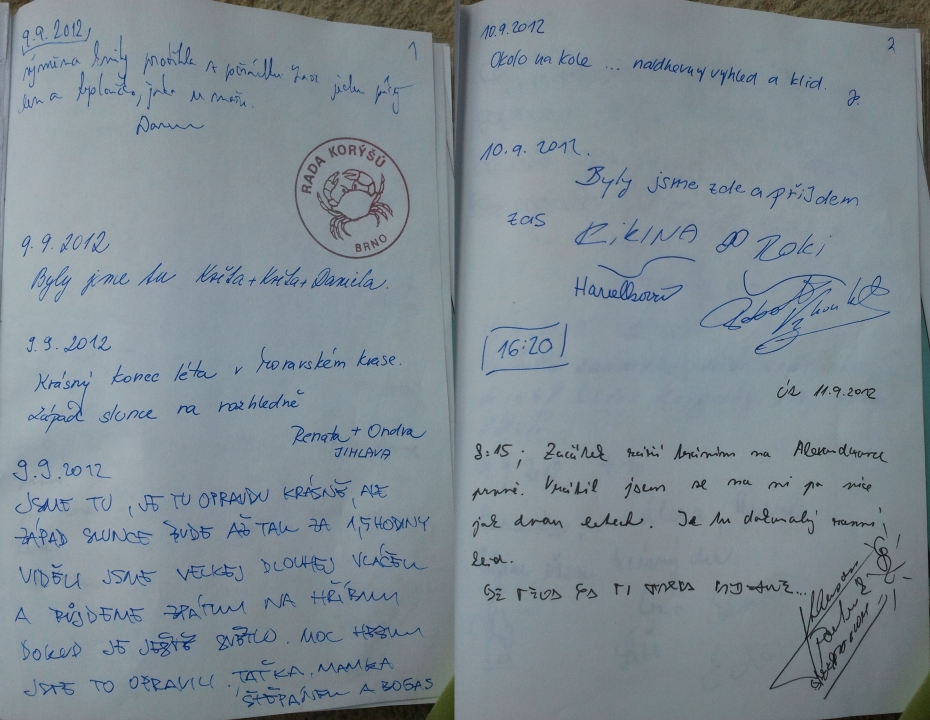 9.9.2012
1
výměna knihy proběhla v pořádku zase jeden pěkný
den a teploučko, jako u moře.
RADA KORÝŠŮ
BRNO
9.9.2012
Byly jsme tu Kriťa + Kriťa + Daniela.
9.9.2012
Krásný konec léta v Moravském krase.
Západ slunce na rozhledně
Renata + Ondra
JIHLAVA
9.9.2012
JSME TU, JE TU OPRAVDU KRÁSNĚ, ALE
ZÁPAD SLUNCE BUDE AŽ TAK ZA 1,5 HODINY
VIDĚLI JSME VELKEJ DLOUHEJ VLÁČEK
A PŮJDEME ZPÁTKY NA HŘÍBKY
DOKUD JE JEŠTĚ SVĚTLO. MOC HEZKY
JSTE TO OPRAVILI. TAŤKA, MAMKA
ŠTĚPÁNEK A BOGAS
2
10.9.2012
Okolo na kole ... nádherný výhled a klid.
10.9.2012.
Byly jsme zde a příjdem
zas RIKINA Roki
16:20
ÚT 11.9.2012
8:15; Začátek září trávím na Alexandrovce
prvně. Vrátil jsem se na ni po více
jak dvou letech. Je tu dokonalý ranní
klid.